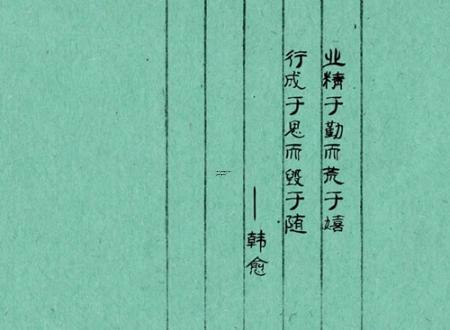 业精于勤而荒于嬉
行成于思而毁于随
——韩愈